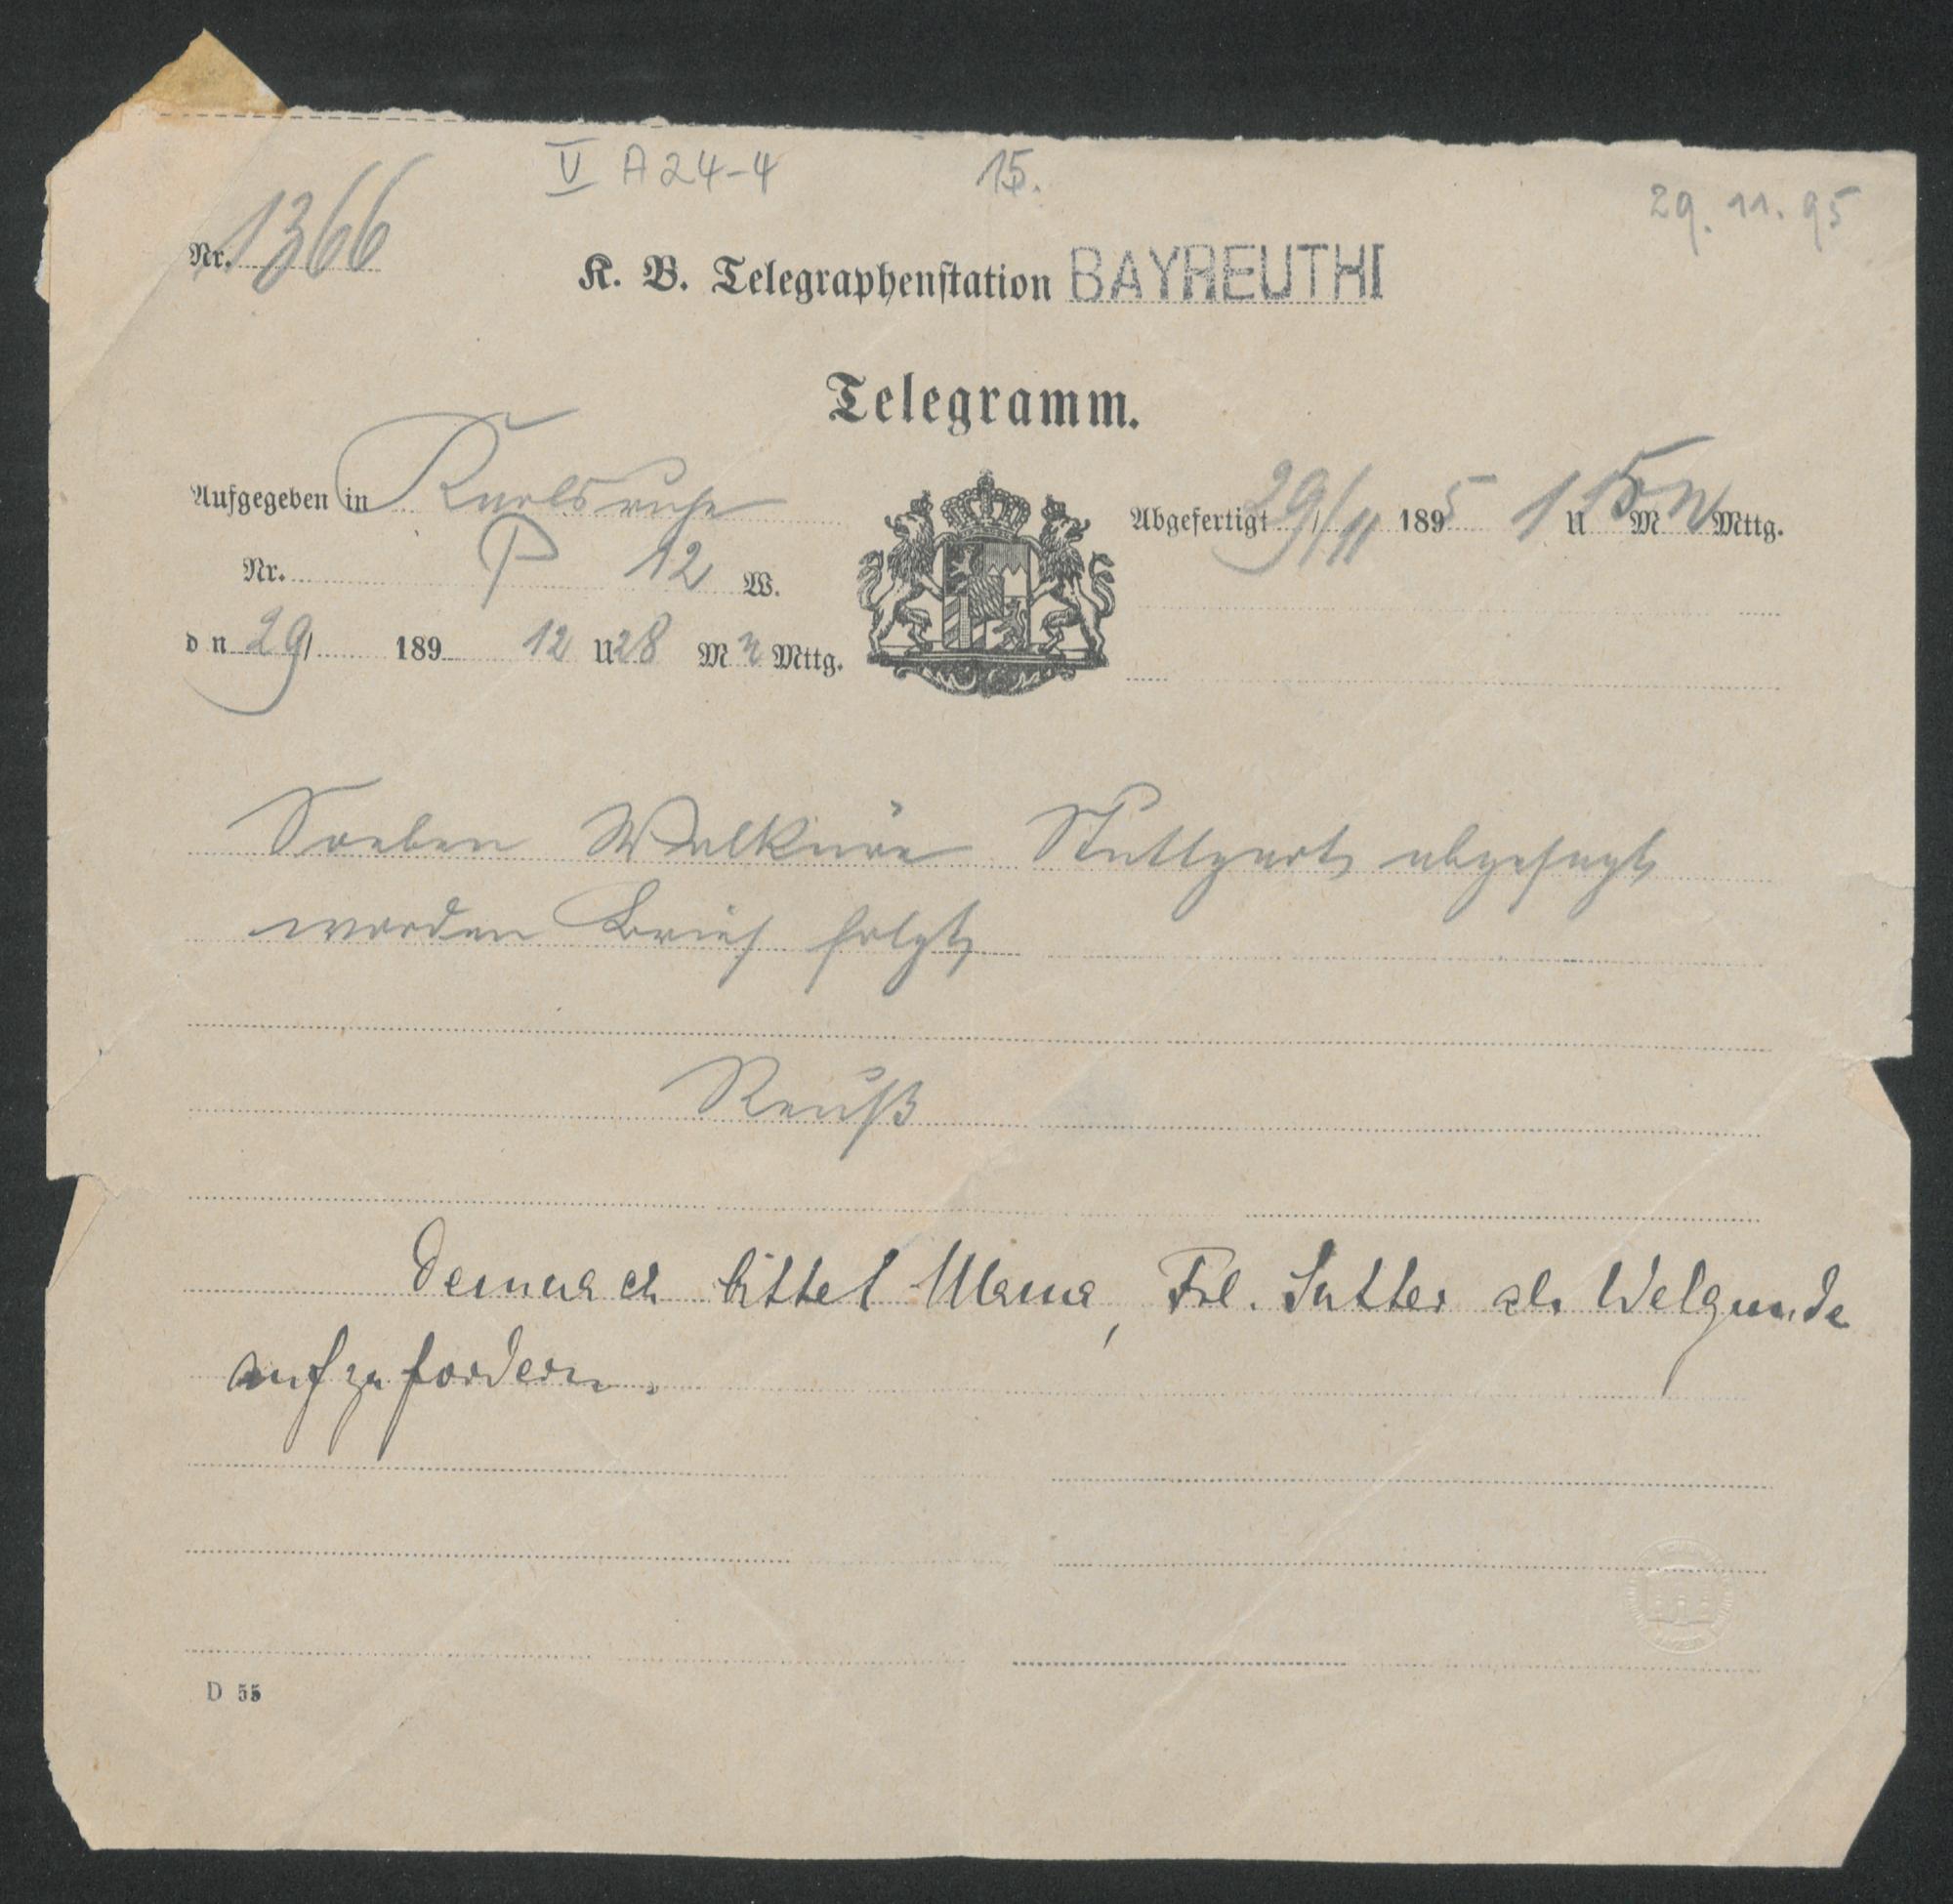 V A 24-4 15. 29. 11. 95
Nr. 1366
K. B. Telegraphenstation BAYREUTH I
Telegramm.
Aufgegeben in Karlsruhe
Abgefertigt 29/11 1895 1 U M N Mttg.
Nr. P 12 W.
d n 29/ 189 12 U 28 M N Mttg.
Soeben Walküre Stuttgart abgesagt
worden Brief folgt
Reuß
Demnach bittet Mama, Frl. Sutter als Welgunde
aufzufordern.
D 55